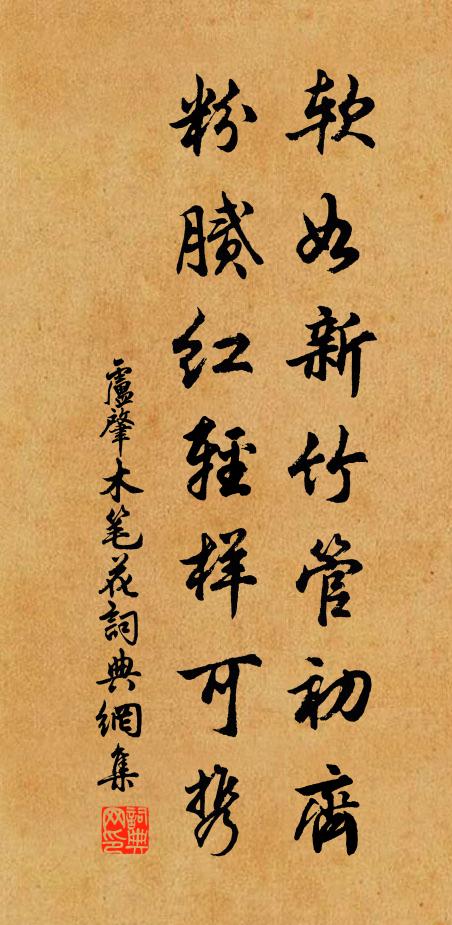 软如新竹管初齊
粉膩红輕样可携
盧肇木笔花詞典網集
詞典网印